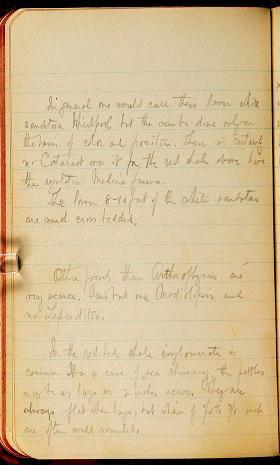 In general one would call these lower white
sandstones Whirlpool but this can be done only on
the basis of color and position. There is certainly
no Cataract over it for the red shales above have
the                Medina fauna.
The lower 8-10 feet of the white sandstone
are much cross bedded.
Other fossils than Arthrophycus are
very scarce. Saw but one Modiolopsis and
no Leperditia.
In the red beds shale conglomerate is
common. It is a case of sea churning, the pebbles
may be as large as 2 inches across. They are
always flat when large, but when of 1/4 to 1/2 inch
are often well rounded.